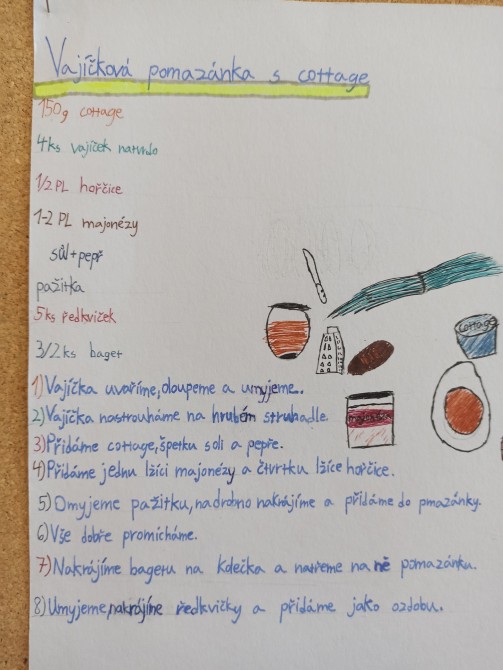 Vajíčková pomazánka s cottage
150g cottage
4ks vajíček natvrdo
1/2 PL hořčice
1-2 PL majonézy
sůl+pepř
pažitka
5ks ředkviček
3/2 ks baget
cottage
1) Vajíčka uvaříme, oloupeme a umyjeme.
2) Vajíčka nastrouháme na hrubém struhadle.
3) Přidáme cottage, špetku soli a pepře.
4) Přidáme jednu lžíci majonézy a čtvrtku lžíce hořčice.
5) Omyjeme pažitku, nadrobno nakrájíme a přidáme do pmazánky.
6) Vše dobře promícháme.
7) Nakrájíme bagetu na kolečka a natřeme na ně pomazánku.
8) Umyjeme, nakrájíme ředkvičky a přidáme jako ozdobu.